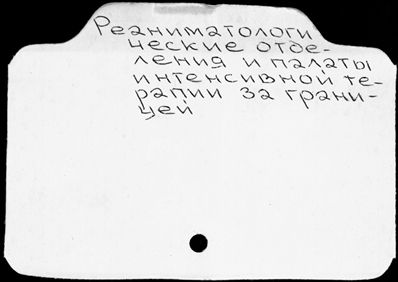 Реаниматологи
ческие отде-
ления и палаты
интенсивной те-
рапии за грани-
цей